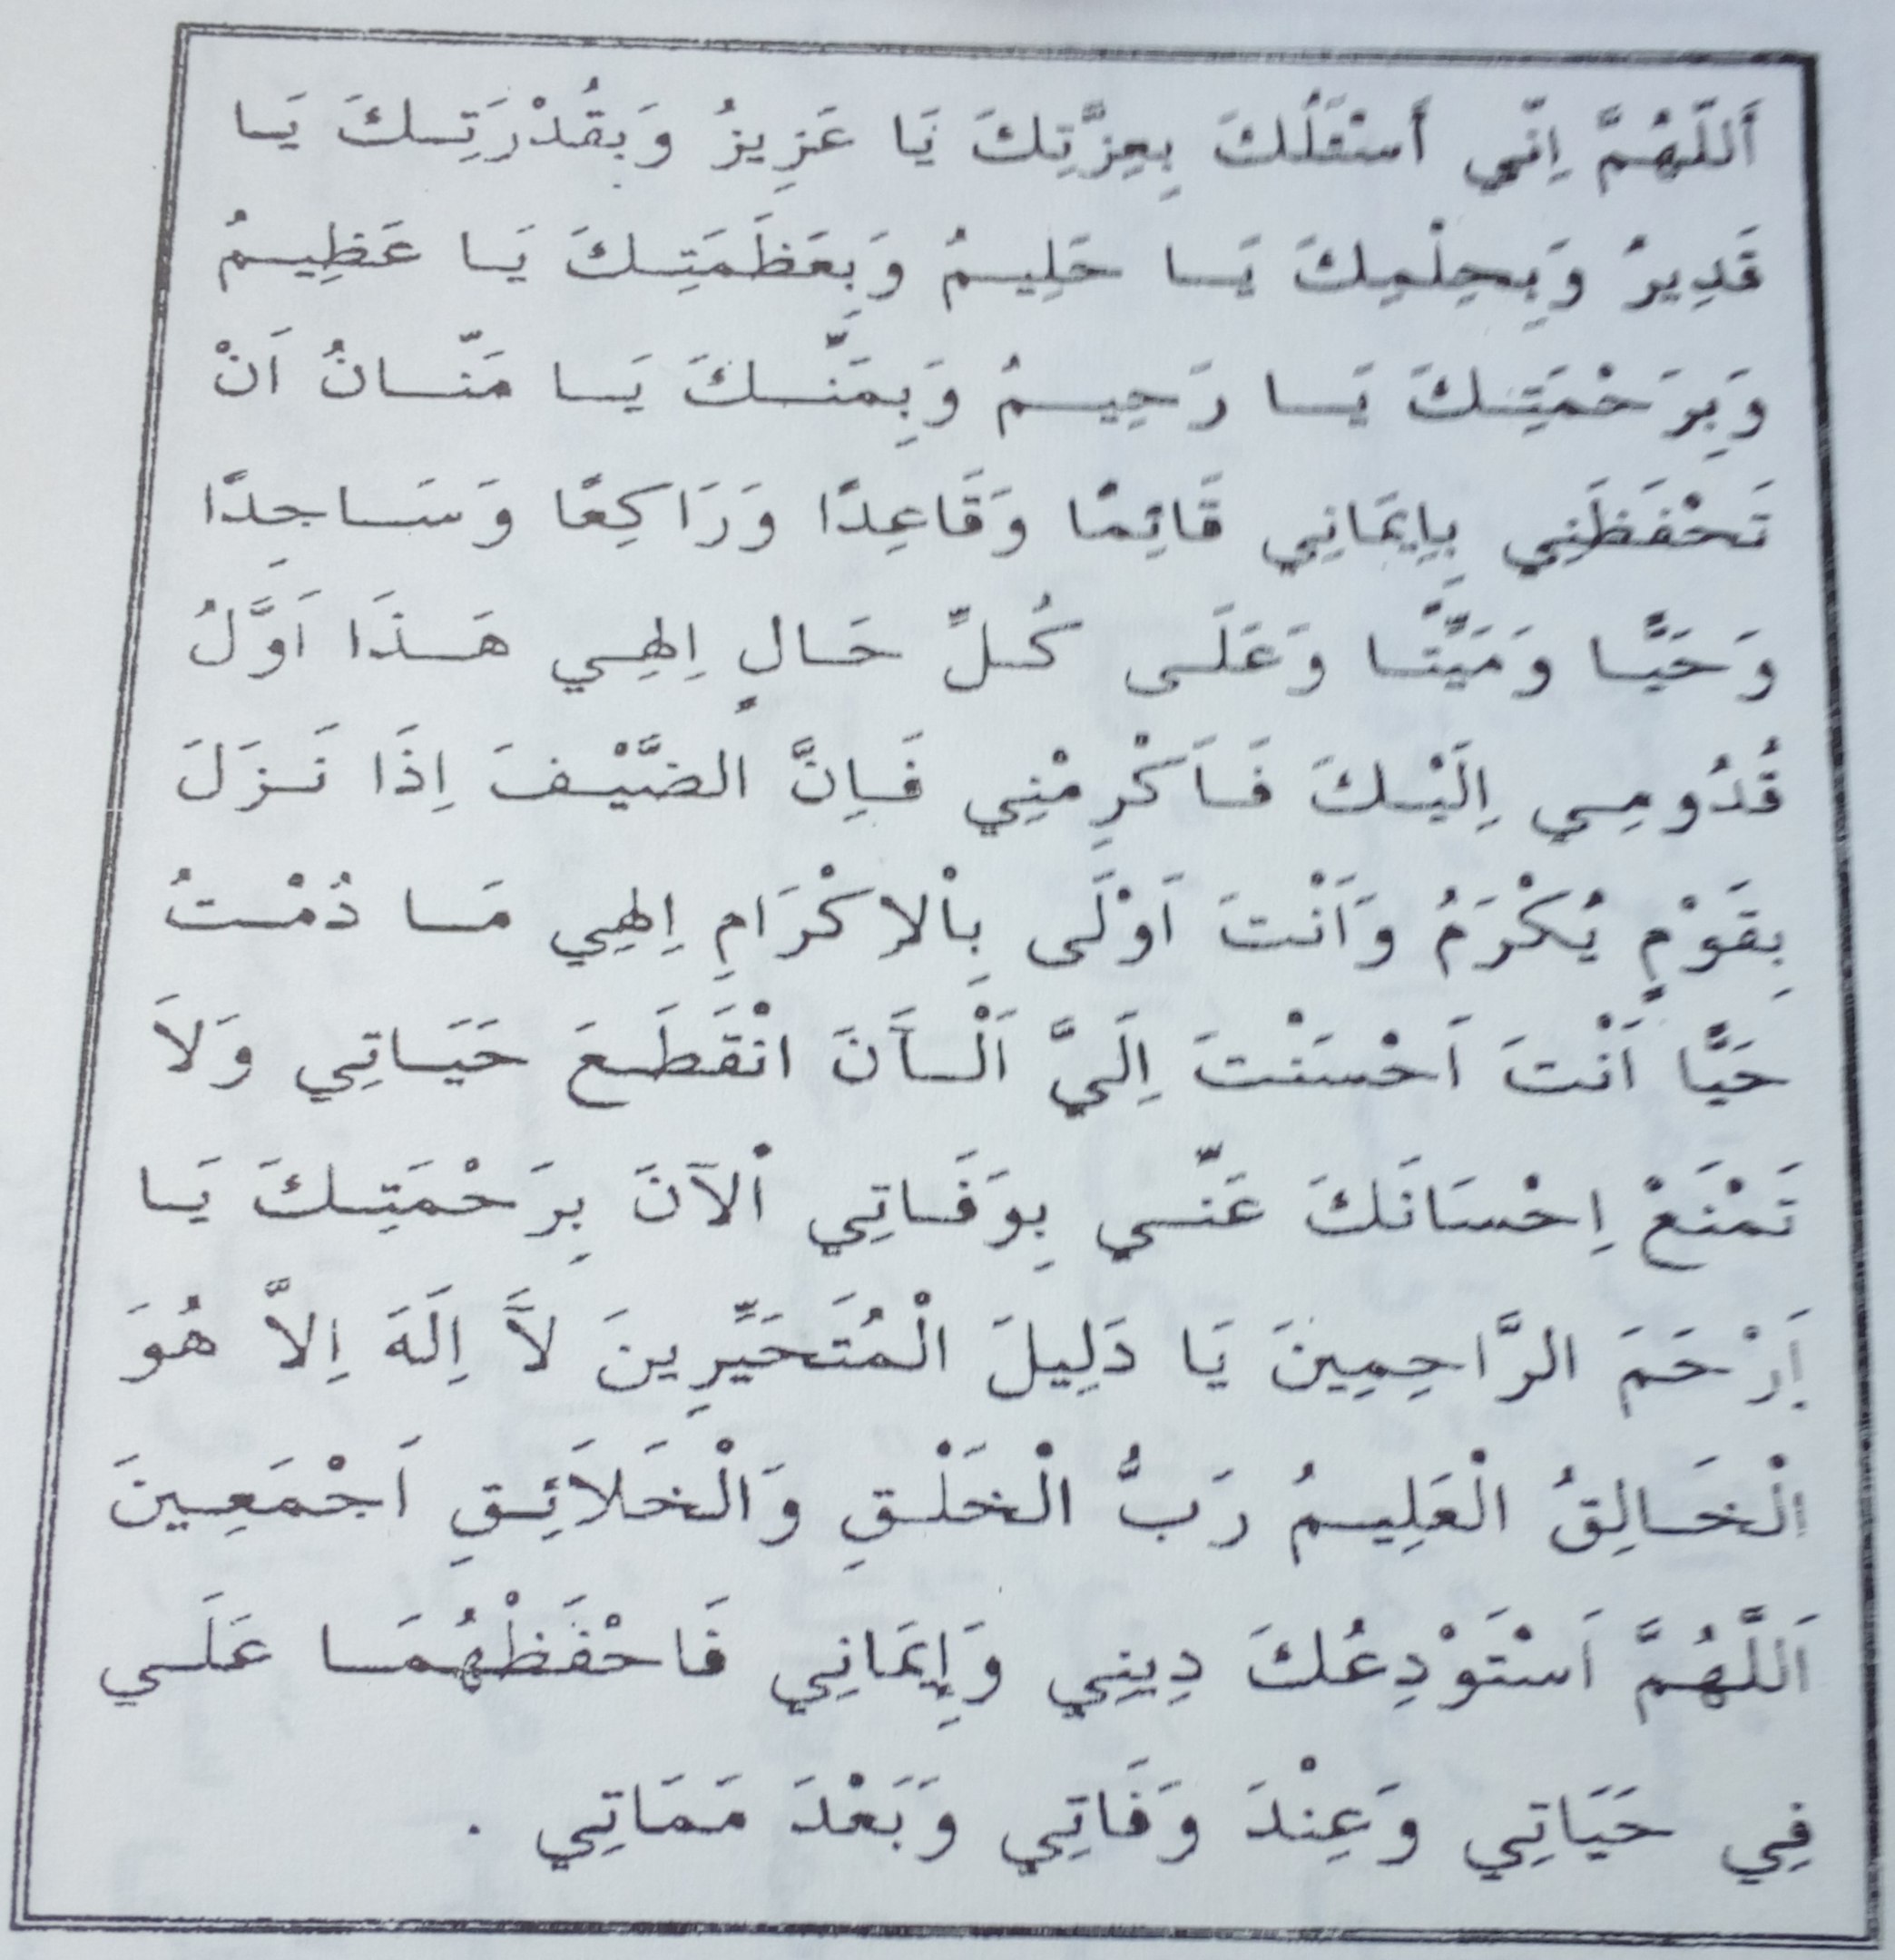 اَللّهُمَّ اِنّي أَسْئَلُكَ بِعِزَّتِكَ يَا عَزِيزُ وَبِقُدْرَتِكَ يَا
قَدِيرُ وَبِحِلْمِكَ يَا حَلِيمُ وَبِعَظَمَتِكَ يَا عَظِيمُ
وَبِرَحْمَتِكَ يَا رَحِيمُ وَبِمَنِّكَ يَا مَنّانُ اَنْ
تَحْفَظَنِي بِاِيمَانِي قَائِمًا وَقَاعِدًا وَرَاكِعًا وَسَاجِدًا
وَحَيًّا وَمَيِّتًا وَعَلَى كُلِّ حَالٍ اِلهِي هَذَا اَوَّلُ
قُدُومِي اِلَيْكَ فَاَكْرِمْنِي فَاِنَّ الضَّيْفَ اِذَا نَزَلَ
بِقَوْمٍ يُكْرَمُ وَاَنْتَ اَوْلَى بِاْلاِكْرَامِ اِلهِي مَا دُمْتُ
حَيًّا اَنْتَ اَحْسَنْتَ اِلَيَّ اَلْاَنَ انْقَطَعَ حَيَاتِي وَلاَ
تَمْنَعْ اِحْسَانَكَ عَنِّي بِوَفَاتِي اْلآنَ بِرَحْمَتِكَ يَا
اَرْحَمَ الرَّاحِمِينَ يَا دَلِيلَ الْمُتَحَيِّرِينَ لاَ اِلَهَ اِلاَّ هُوَ
الْخَالِقُ الْعَلِيمُ رَبُّ الْخَلْقِ وَالْخَلاَئِقِ اَجْمَعِينَ
اَللَّهُمَّ اَسْتَوْدِعُكَ دِينِي وَاِيمَانِي فَاحْفَظْهُمَا عَلَي
فِي حَيَاتِي وَعِنْدَ وَفَاتِي وَبَعْدَ مَمَاتِي .